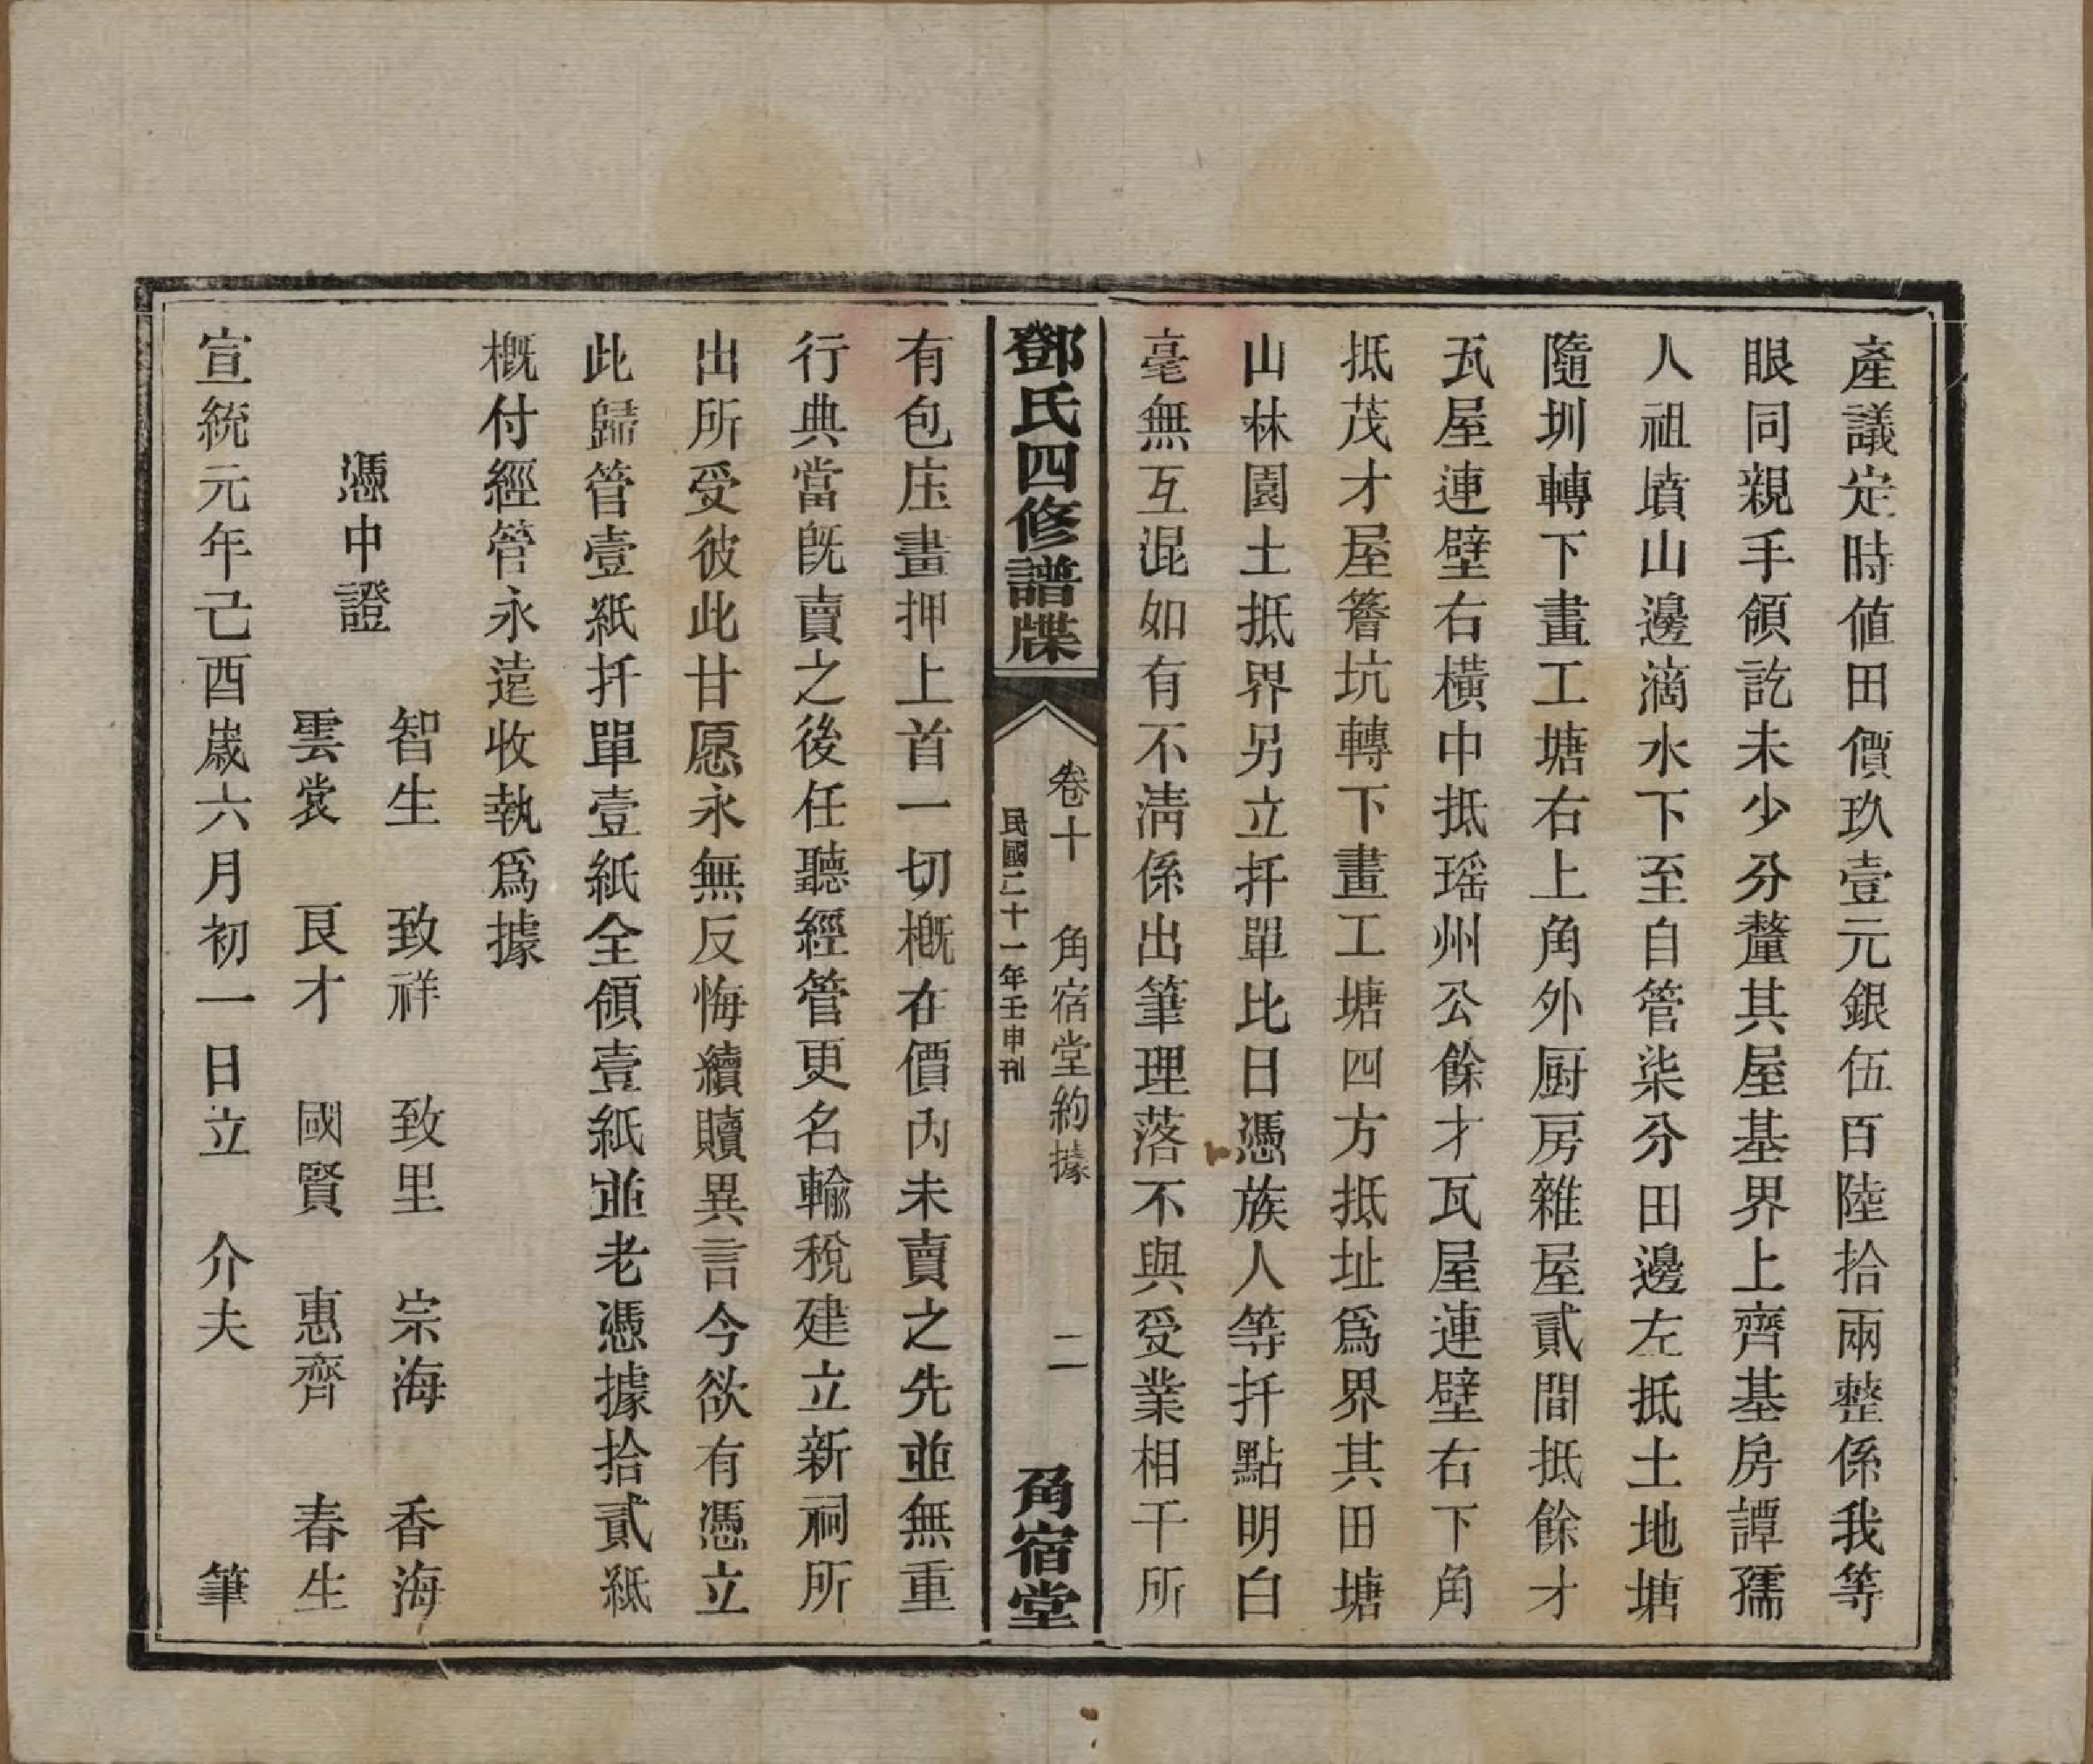 產議定時値田價玖壹元銀伍百陸拾兩整係我等
眼同親手領訖未少分釐其屋基界上齊基房譚孺
人祖墳山邊滴水下至自管柒分田邊左抵土地塘
隨圳轉下畫工塘右上角外厨房雜屋貳間抵餘才
瓦屋連壁右橫中抵瑶州公餘才瓦屋連壁右下角
抵茂才屋簷坑轉下畫工塘四方抵址爲界其田塘
山林園土抵界另立扦單比日憑族人等扦點明白
毫無互混如有不淸係出筆理落不與受業相干所
鄧氏四修譜牒
卷十 角宿堂約據 二
民國二十一年壬申刊
角宿堂
有包庄畫押上首一切槪在價內未賣之先並無重
行典當旣賣之後任聽經管更名輸稅建立新祠所
出所受彼此甘愿永無反悔續贖異言今欲有憑立
此歸管壹紙扦單壹紙全領壹紙並老憑據拾貳紙
槪付經管永遠收執爲據
智生 致祥 致里 宗海 香海
憑中證
雲裳 艮才 國賢 惠齊 春生
宣統元年己酉歲六月初一日立 介夫 筆